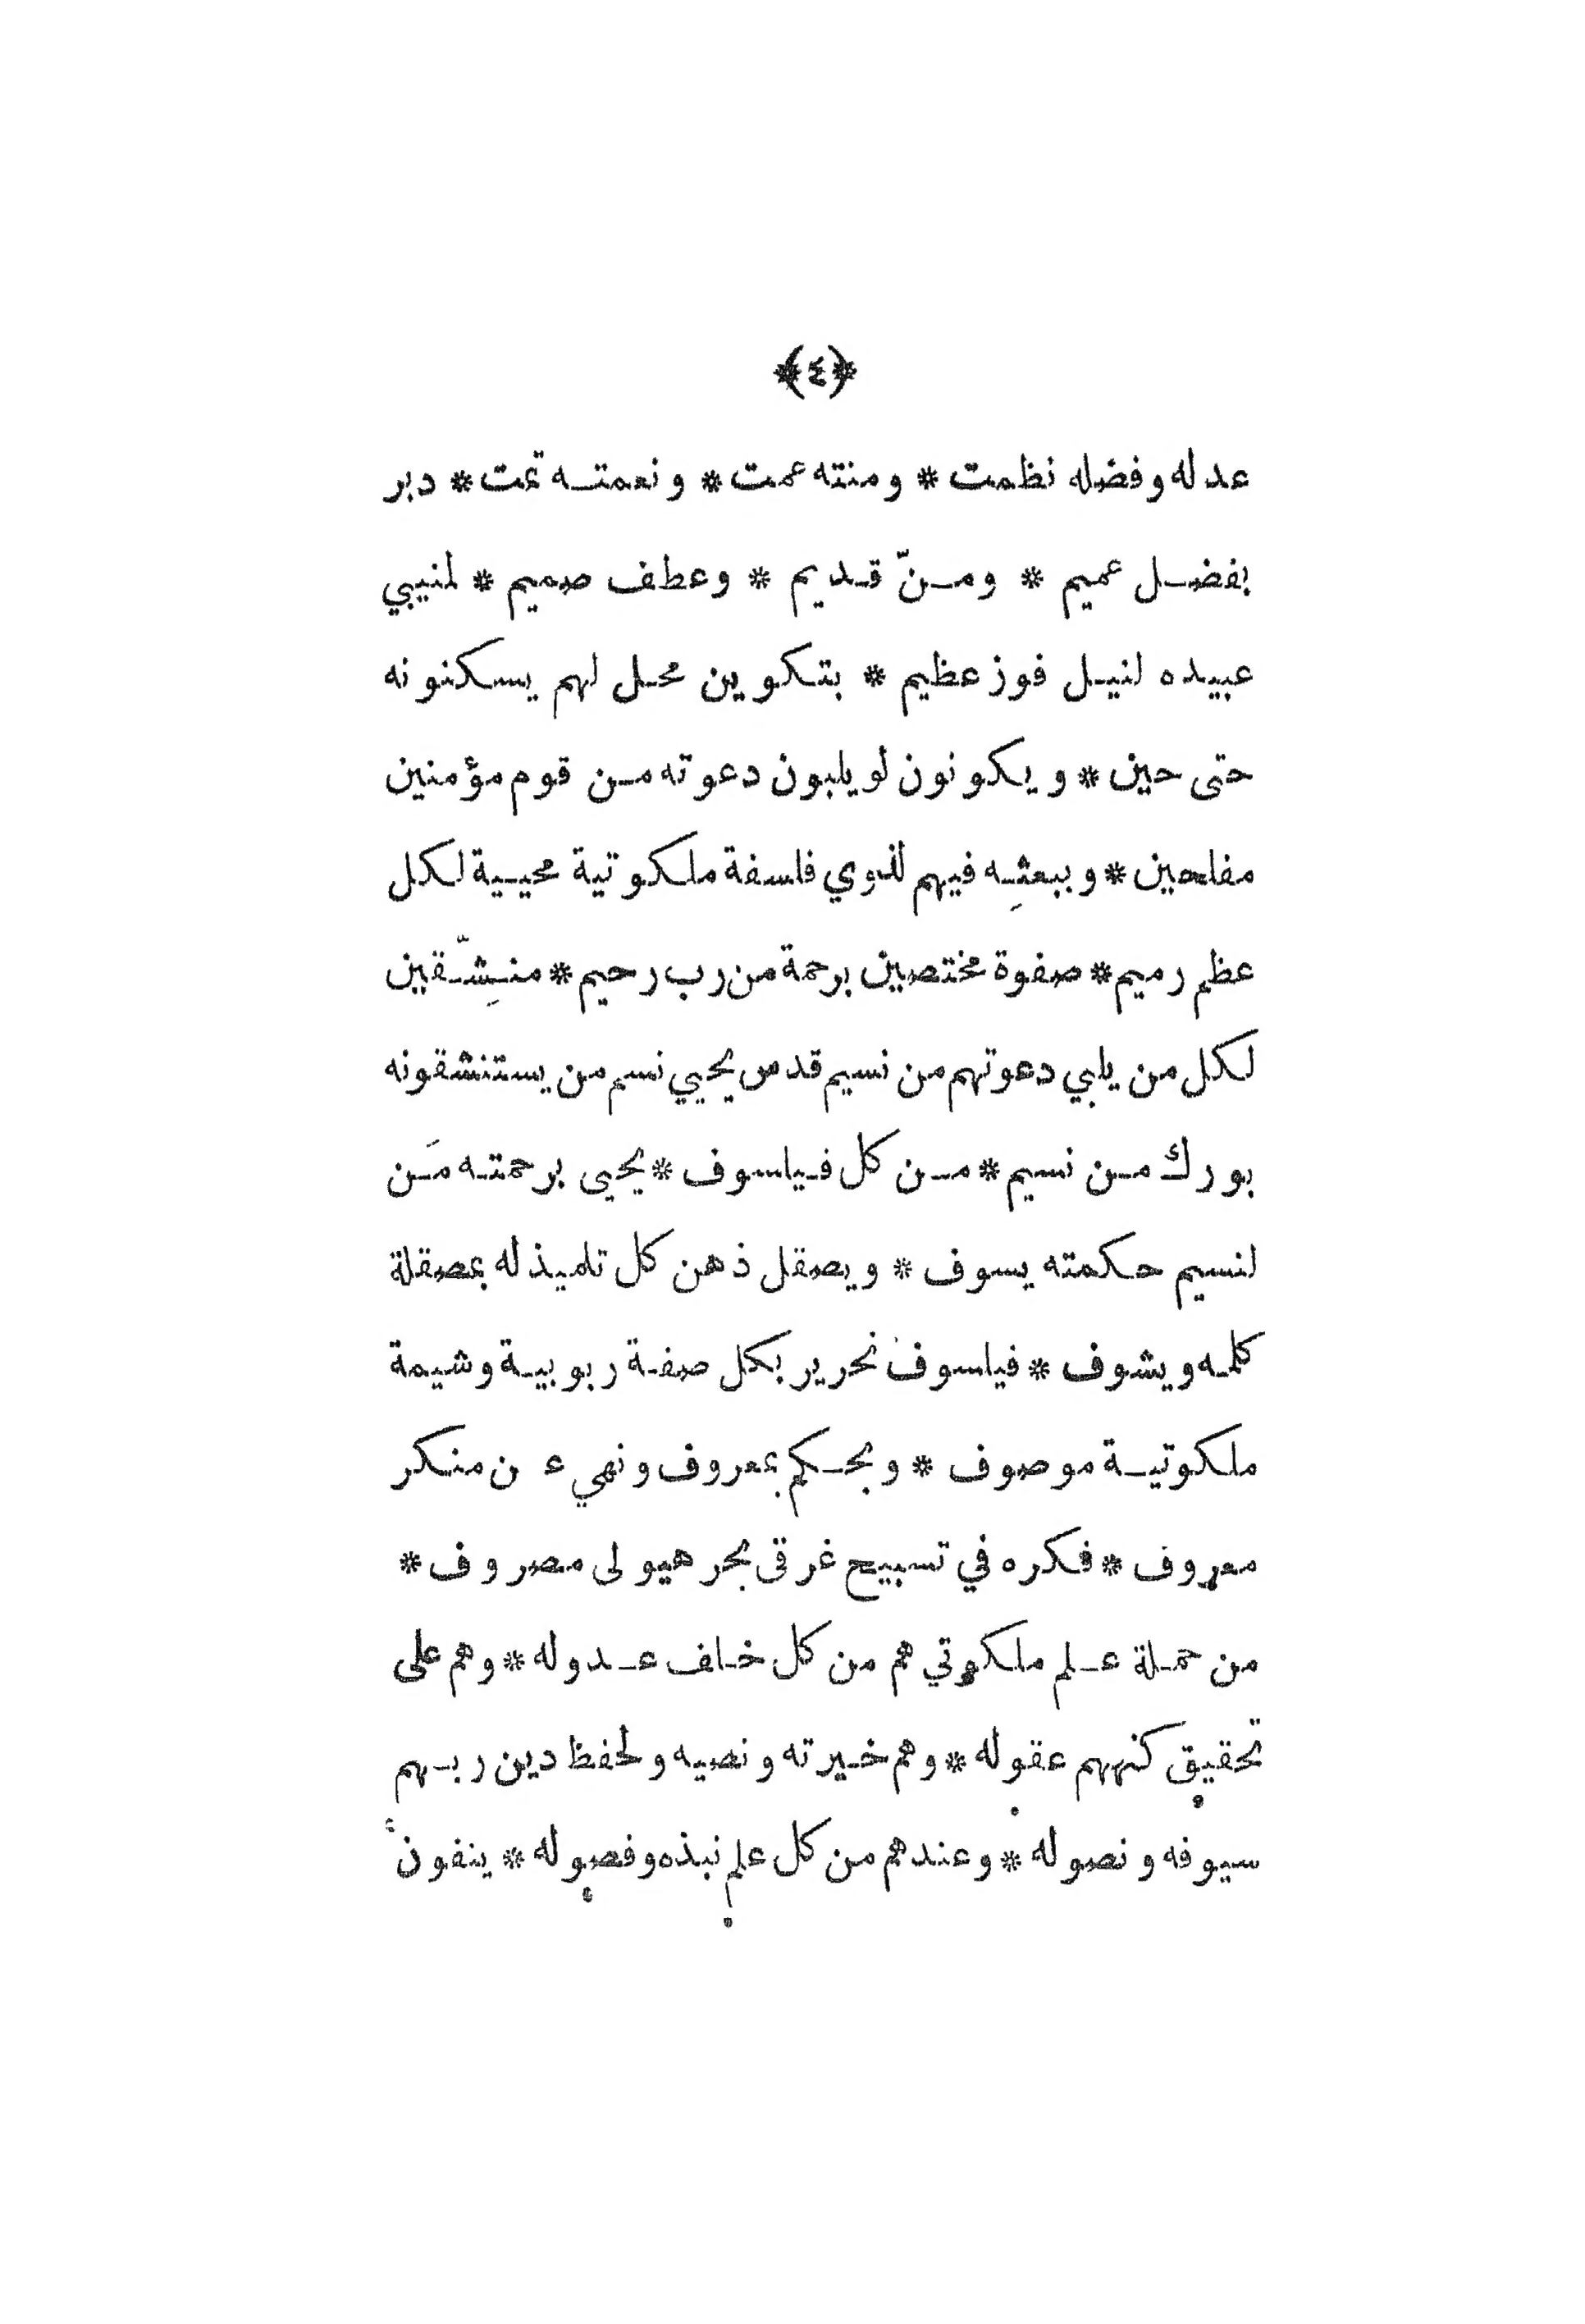 ﴿٤﴾
عدله وفضله نظمت * ومنته عمت * ونعمته تمت * دبر
بفضل عميم * ومنّ قديم * وعطف صميم * لمنيبي
عبيده لنيل فوز عظيم * بتكوين محل لهم يسكنونه
حتى حين * ويكونون لو يلبون دعوته من قوم مؤمنين
مفلحين * وببعثِه فيهم لذوي فلسفة ملكوتية محيية لكل
عظم رميم * صفوة مختصين برحمة من رب رحيم * منشِّقين
لكل من يلبي دعوتهم من نسيم قدس يحيي نسم من يستنشقونه
بورك من نسيم * من كل فيلسوف * يحيى برحمته مَن
لنسيم حكمته يسوف * ويصقل ذهن كل تلميذ له بمصقلة
كلمه ويشوف * فيلسوف نحرير بكل صفة ربوبية وشيمة
ملكوتية موصوف * وبحكم بمعروف ونهي عن منكر
معروف * فكره في تسبيح غرقى بحر هيولى مصروف *
من حملة علم ملكوتي هم من كل خلف عدوله * وهم على
تحقيق كنههم عقوله * وهم خيرته ونصيه ولحفظ دين ربهم
سيوفه ونصوله * وعندهم من كل علم نبذه وفصوله * ينفون